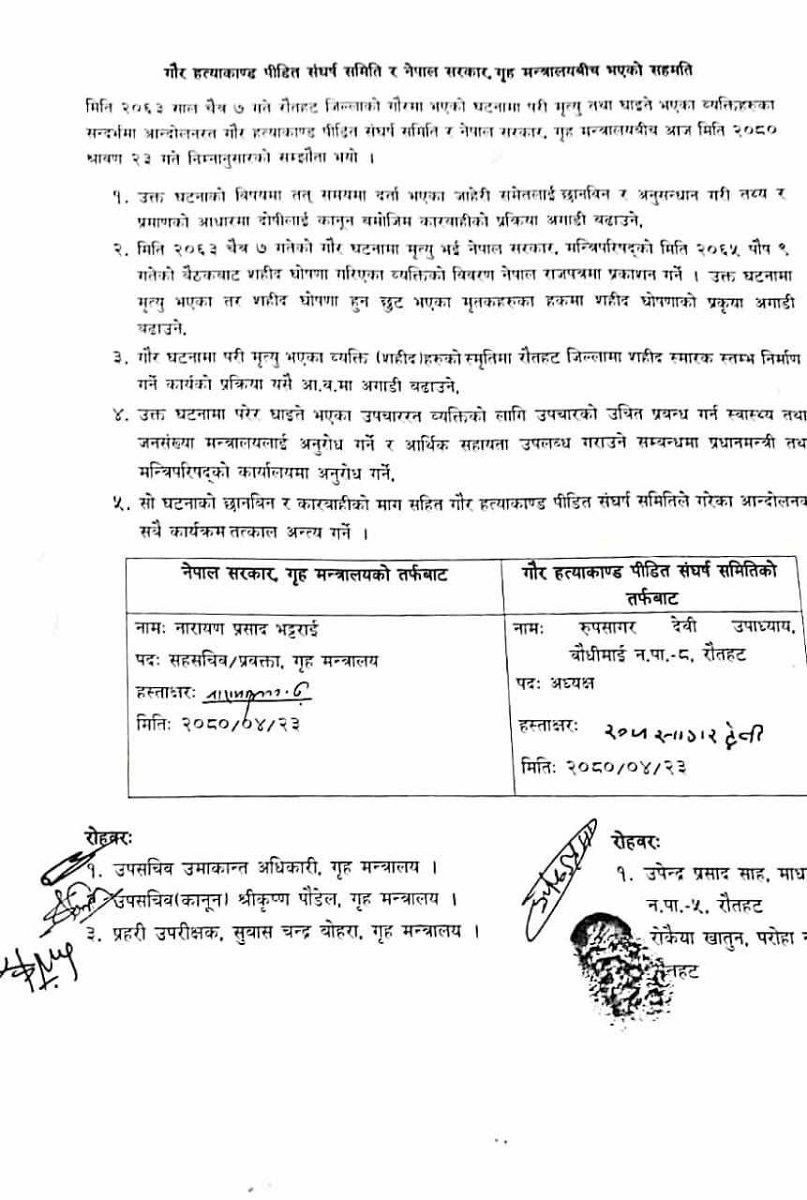 गौर हत्याकाण्ड पीडित संघर्ष समिति र नेपाल सरकार, गृह मन्त्रालयबीच भएको सहमति
मिति २०६३ साल चैत्र ७ गते रौतहट जिल्लाको गौरमा भएको घटनामा परी मृत्यु तथा घाइते भएका व्यक्तिहरुका
सन्दर्भमा आन्दोलनरत गौर हत्याकाण्ड पीडित संघर्ष समिति र नेपाल सरकार, गृह मन्त्रालयबीच आज मिति २०८०
श्रावण २३ गते निम्नानुसारको सम्झौता भयो ।
१. उक्त घटनाको विषयमा तत् समयमा दर्ता भएका जाहेरी समेतलाई छानविन र अनुसन्धान गरी तथ्य र
प्रमाणको आधारमा दोषीलाई कानून बमोजिम कारवाहीको प्रक्रिया अगाडी बढाउने,
२. मिति २०६३ चैत्र ७ गतेको गौर घटनामा मृत्यु भई नेपाल सरकार, मन्त्रिपरिषद्को मिति २०६५ पौष ९
गतेको बैठकबाट शहीद घोषणा गरिएका व्यक्तिको विवरण नेपाल राजपत्रमा प्रकाशन गर्ने । उक्त घटनामा
मृत्यु भएका तर शहीद घोषणा हुन छुट भएका मृतकहरुका हकमा शहीद घोषणाको प्रकृया अगाडी
बढाउने,
३. गौर घटनामा परी मृत्यु भएका व्यक्ति (शहीद)हरुको स्मृतिमा रौतहट जिल्लामा शहीद स्मारक स्तम्भ निर्माण
गर्ने कार्यको प्रक्रिया यसै आ.व.मा अगाडी बढाउने,
४. उक्त घटनामा परेर घाइते भएका उपचाररत व्यक्तिको लागि उपचारको उचित प्रबन्ध गर्न स्वास्थ्य तथा
जनसंख्या मन्त्रालयलाई अनुरोध गर्ने र आर्थिक सहायता उपलब्ध गराउने सम्बन्धमा प्रधानमन्त्री तथ
मन्त्रिपरिषद्को कार्यालयमा अनुरोध गर्ने,
५. सो घटनाको छानविन र कारवाहीको माग सहित गौर हत्याकाण्ड पीडित संघर्ष समितिले गरेका आन्दोलनक
सबै कार्यक्रम तत्काल अन्त्य गर्ने ।
नेपाल सरकार, गृह मन्त्रालयको तर्फबाट
नामः नारायण प्रसाद भट्टराई
पदः सहसचिव/प्रवक्ता, गृह मन्त्रालय
हस्ताक्षरः
मितिः २०८०/०४/२३
गौर हत्याकाण्ड पीडित संघर्ष समितिको
तर्फबाट
नामः रुपसागर देवी उपाध्याय,
बौधीमाई न.पा.-८, रौतहट
पदः अध्यक्ष
हस्ताक्षरः रुपसागर देवी
मितिः २०८०/०४/२३
रोहवरः
१. उपसचिव उमाकान्त अधिकारी, गृह मन्त्रालय ।
उपसचिव(कानून) श्रीकृष्ण पौडेल, गृह मन्त्रालय ।
३. प्रहरी उपरीक्षक, सुवास चन्द्र बोहरा, गृह मन्त्रालय ।
रोहवरः
१. उपेन्द्र प्रसाद साह, माध
न.पा.-५, रौतहट
रोकैया खातुन, परोहा